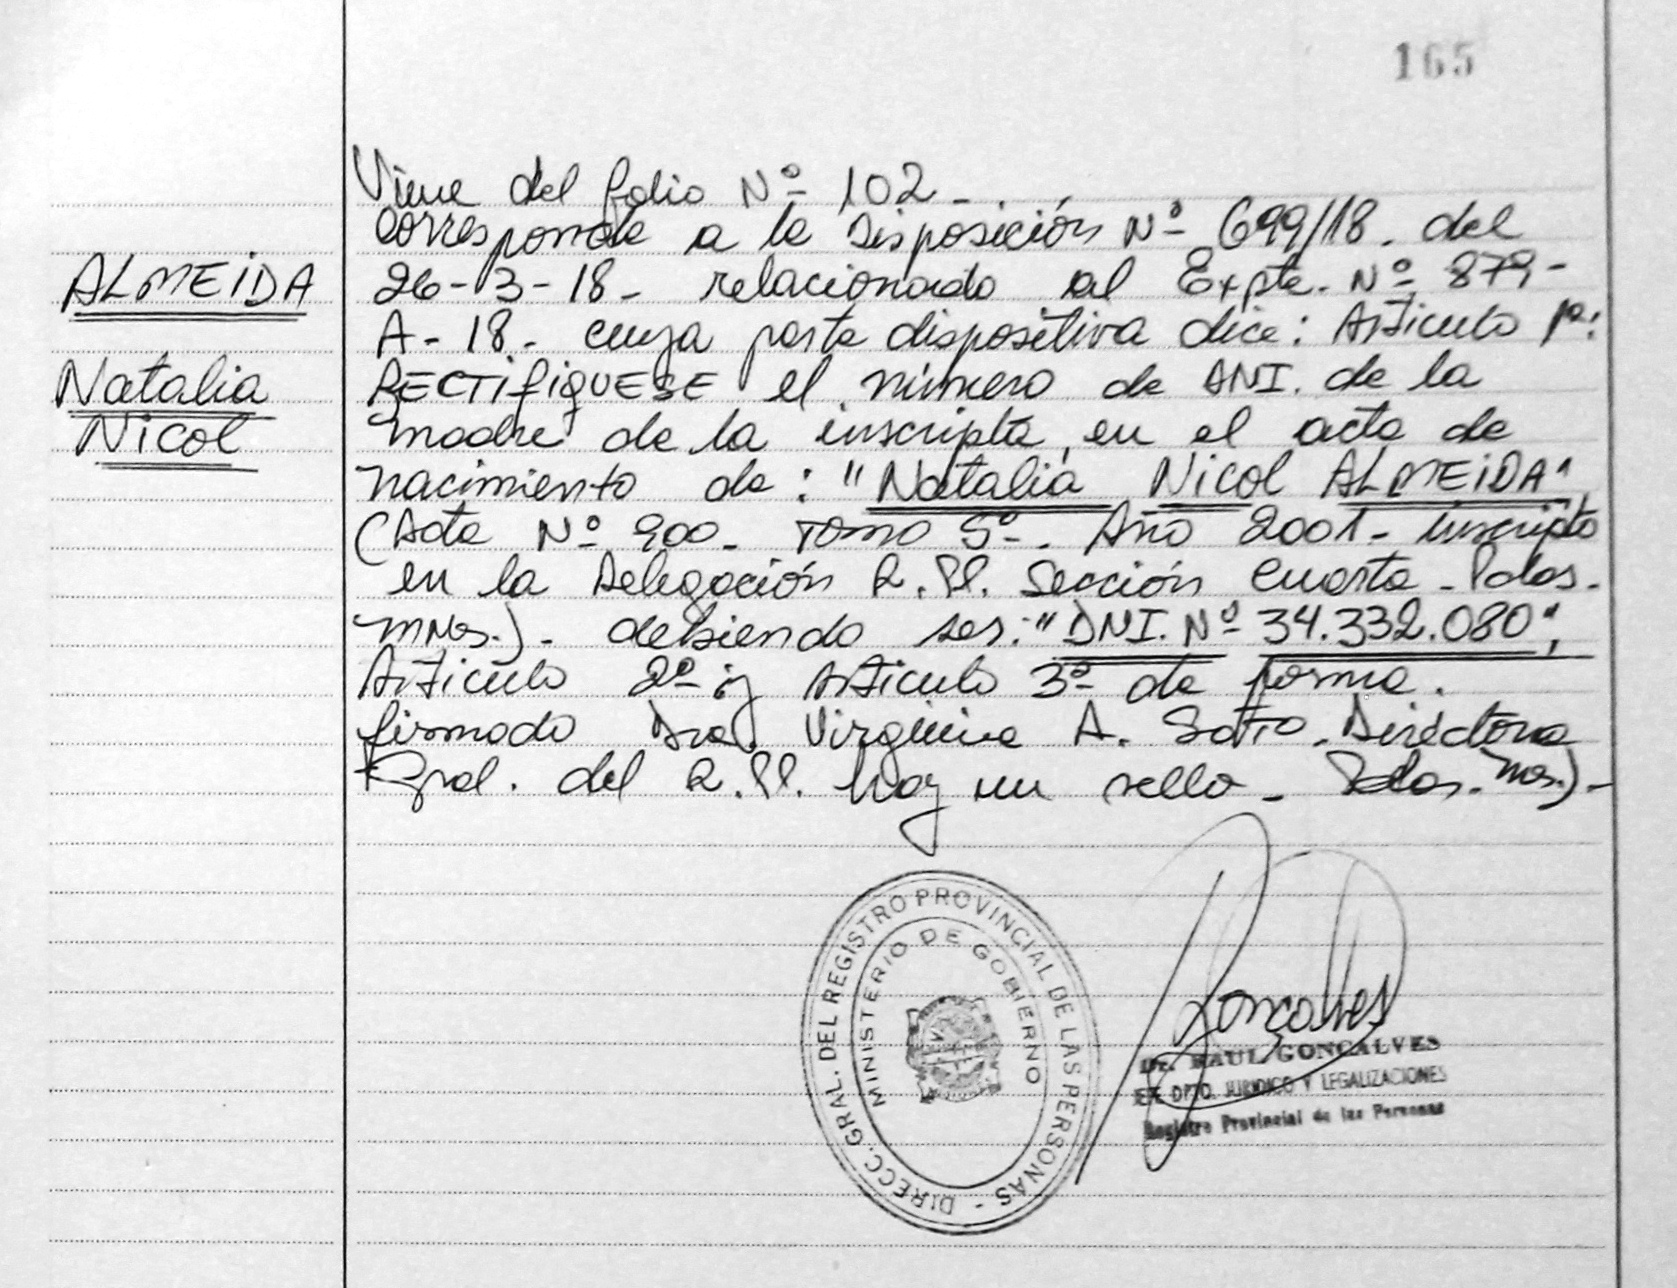 165
Viene del folio Nº 102 -
Corresponde a la Disposición Nº 699/18. del
ALMEIDA
26-3-18- relacionado al Expte. Nº 879-
A-18- cuya parte dispositiva dice: Articulo 1º:
Natalia
RECTIFIQUESE el número de DNI. de la
Nicol
madre de la inscripta, en el acta de
nacimiento de: "Natalia Nicol ALMEIDA"
(Acta Nº 900- TOMO 5º-. Año 2001- inscripto
en la Delegación R.P.P. Sección Cuarta - Pdas.
mnes.)- debiendo ser: "DNI. Nº 34.332.080",
Articulo 2º y Articulo 3º de forma.
firmado Dra. Virginia A. SOTO. Directora
Gral. del R.P.P. hay un sello - Pdas. mes.)-
DIRECC. GRAL. DEL REGISTRO PROVINCIAL DE LAS PERSONAS -
MINISTERIO DE GOBIERNO
Goncalves
Dr. RAUL GONCALVES
JEFE DPTO. JURIDICO Y LEGALIZACIONES
Registro Provincial de las Personas